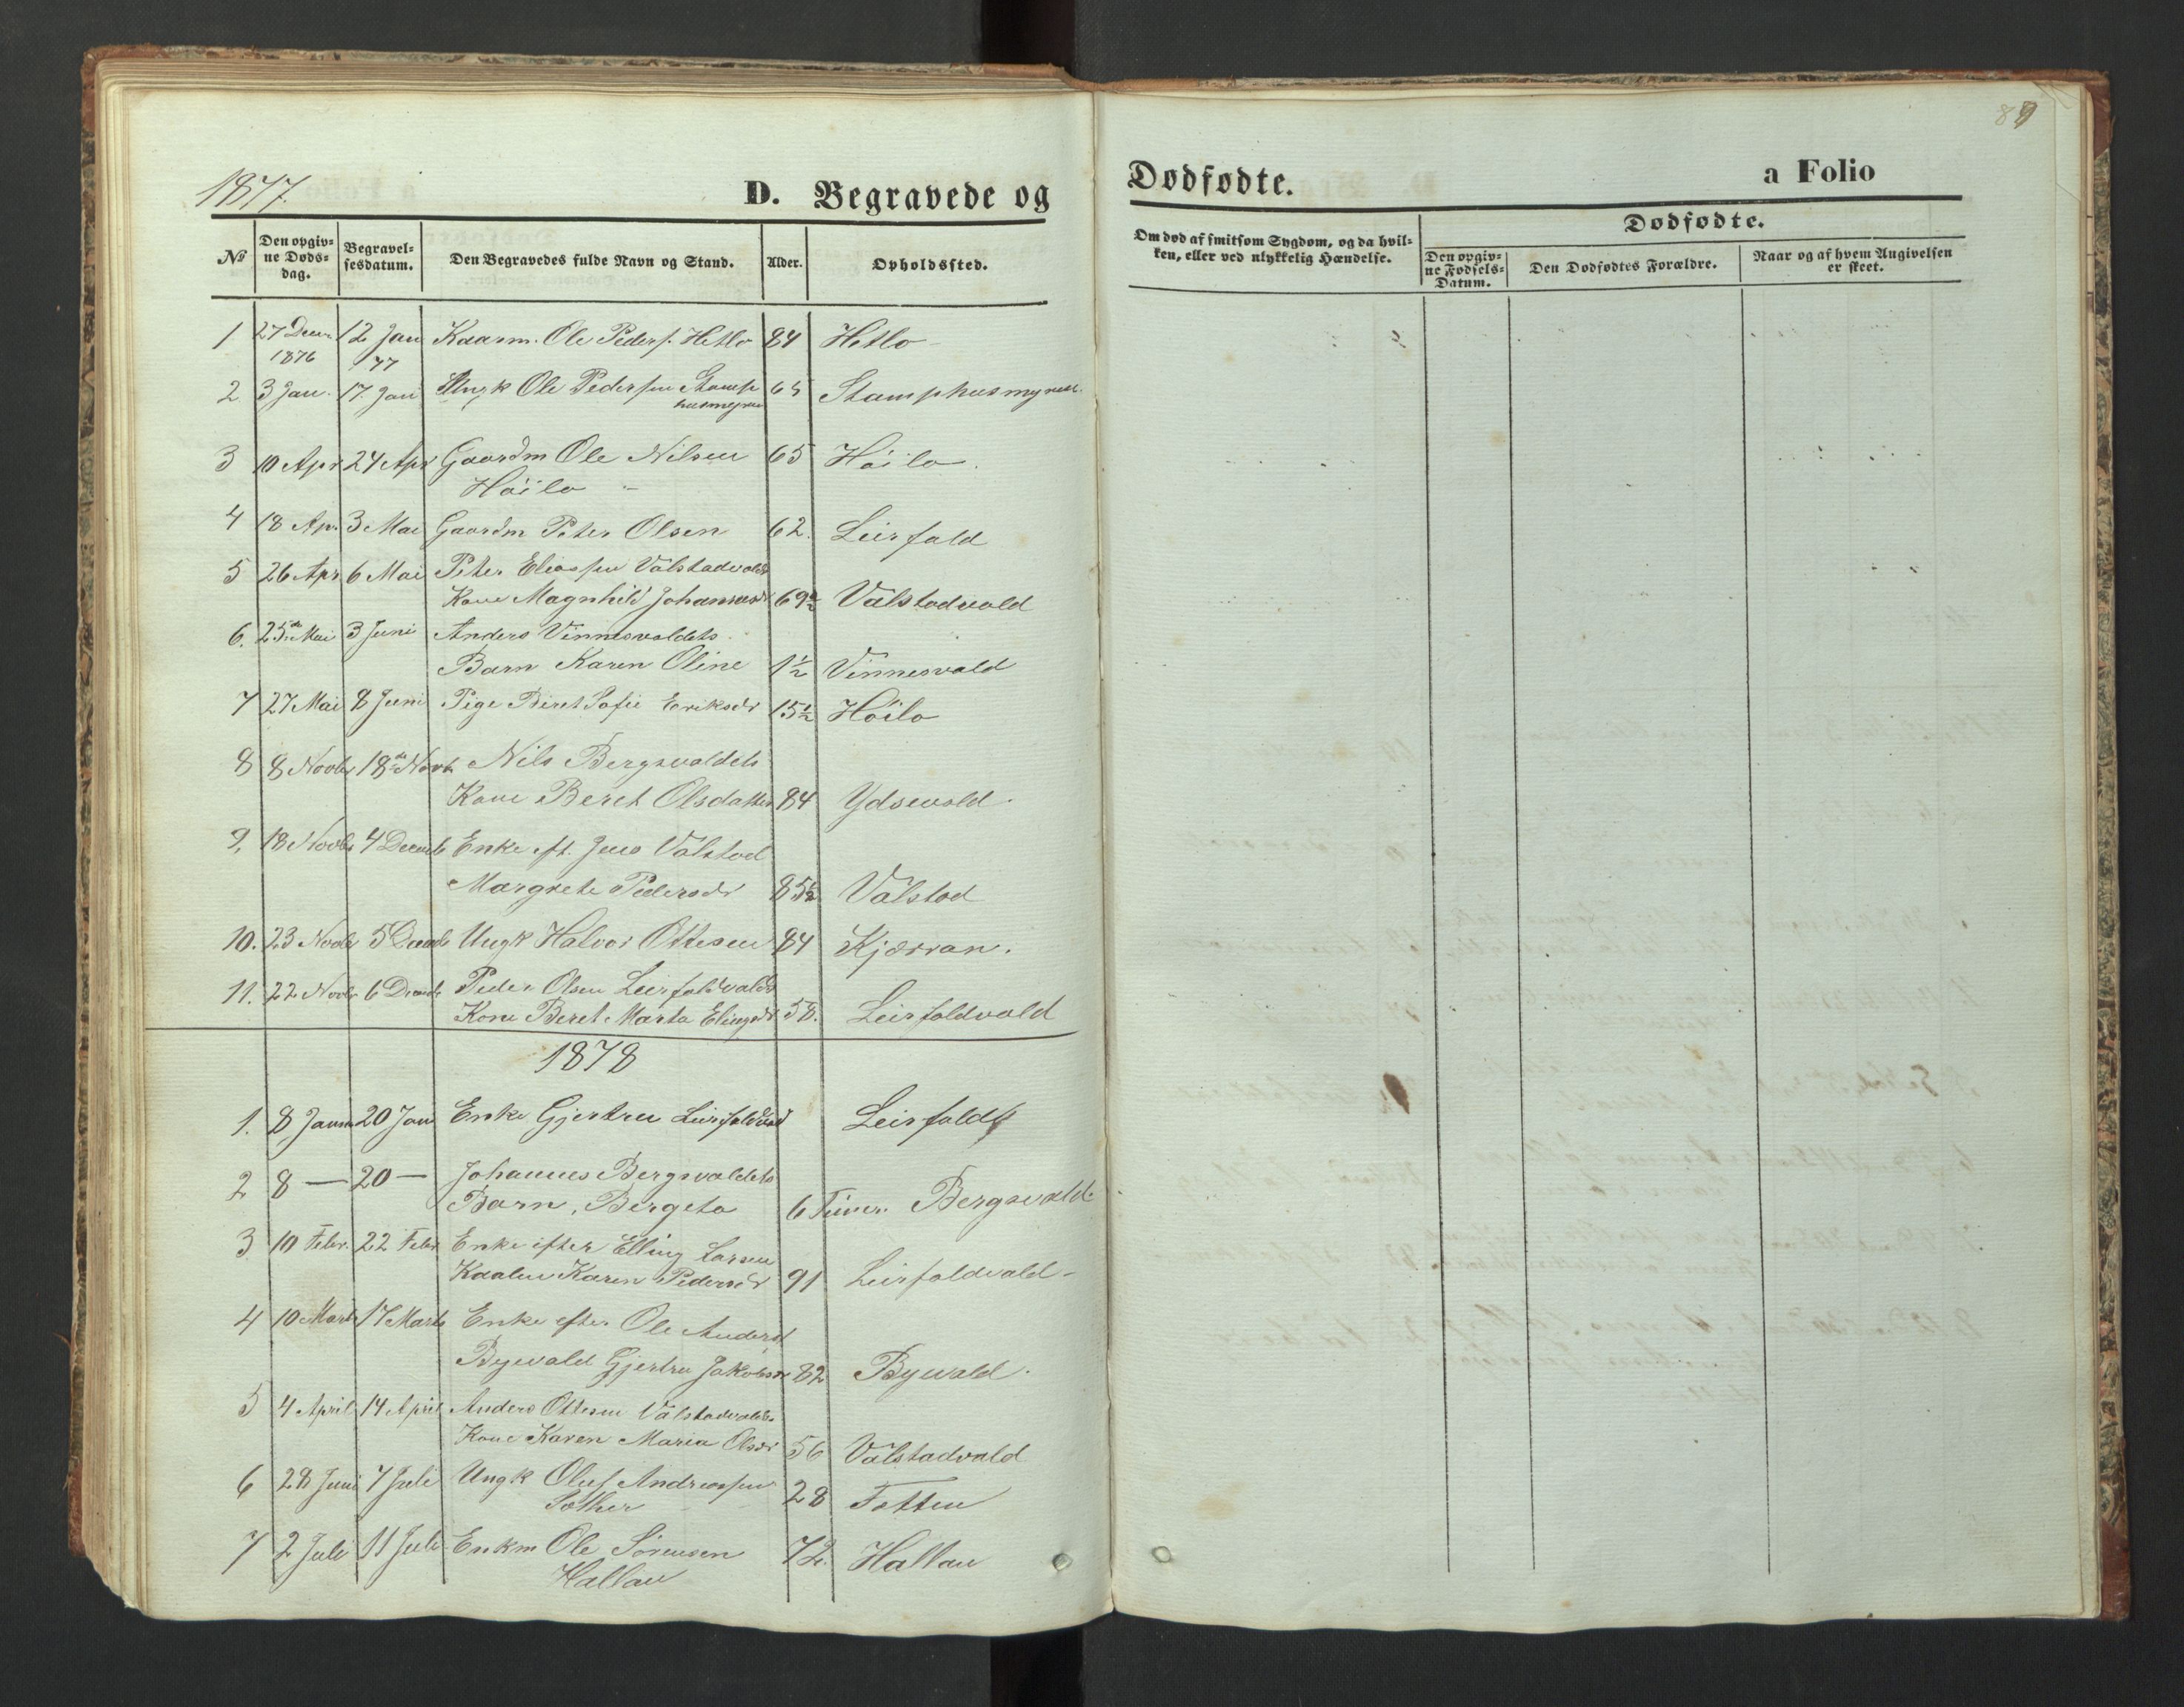 1877.
D. Begravede og
№
Den opgiv=
ne Døds=
dag.
Begravel=
sesdatum.
Den Begravedes fulde Navn og Stand.
Alder.
Opholdssted.
1 27 Decr. 12 Jan Kaarm. Ole Peders. Hetlo 84 Hetlo
1876 77
2 3 Jan. 17. Jan Ungk Ole Pedersen Stamp 65 Stamphusmyren.
husmyren
3 10 Apr 24 Apr Gaardm Ole Nilsen 65 Höilo.
Höilo
4 18 Apr. 3 Mai Gaardm Peter Olsen 62. Leirfald
5 26 Apr 6 Mai Peter Eliassen Valstadvalds
Kone Magnhild Johansdr 69½ Valstadvald
6. 25de Mai 3 Juni Anders Vinnesvaldets
Barn Karen Oline 1½ Vinnesvald
7 27 Mai 8 Juni Pige Beret Sofie Eriksdr 15½ Höilo
8 8 Novbr 18de Novb Nils Bergsvaldets
Kone Beret Olsdatter 84 Ydsevald.
9, 18 Novbr 4 Decemb Enke eft. Jens Valstad
Margrete Pedersdr 85½ Valstad
10. 23 Novbr 5 Decemb Ungk Halvor Ottesen 84 Kjærran.
11. 22 Novbr 6 Decemb Peder Olsen Leirfaldvalds
Kone Beret Marta Elingsdr 58. Leirfaldvald
1878
1. 8 Januar 20 Jan Enke Gjertru Leirfaldvald Leirfald
2 8 — 20 — Johannes Bergsvaldets
Barn, Bergeta 6 Timer. Bergsvald.
3 10 Febr. 22 Febr Enke efter Elling Larsen
Kaalen Karen Pedersdr 91 Leirfaldvald
4 10 Marts 17 Marts Enke efter Ole Anders
Byevald Gjertru Jakobsdr 82 Byevald.
5 4 April 14 April Anders Ottesen Valstadvalds
Kone Karen Maria Olsdr 56 Valstadvald
6 28 Juni 7 Juli Ungk Oluf Andreassen 28 Fatten
Sother
7 2 Juli 11 Juli Enkm Ole Sörensen 72. Hallan
Hallan
89
Dødfødte.
a Folio
Om død af smitsom Sygdom, og da hvil=
ken, eller ved ulykkelig Hændelse.
Dødfødte.
Den opgiv=
ne Fødsels=
Datum.
Den Dødfødtes Forældre.
Naar og af hvem Angivelsen
er skeet.